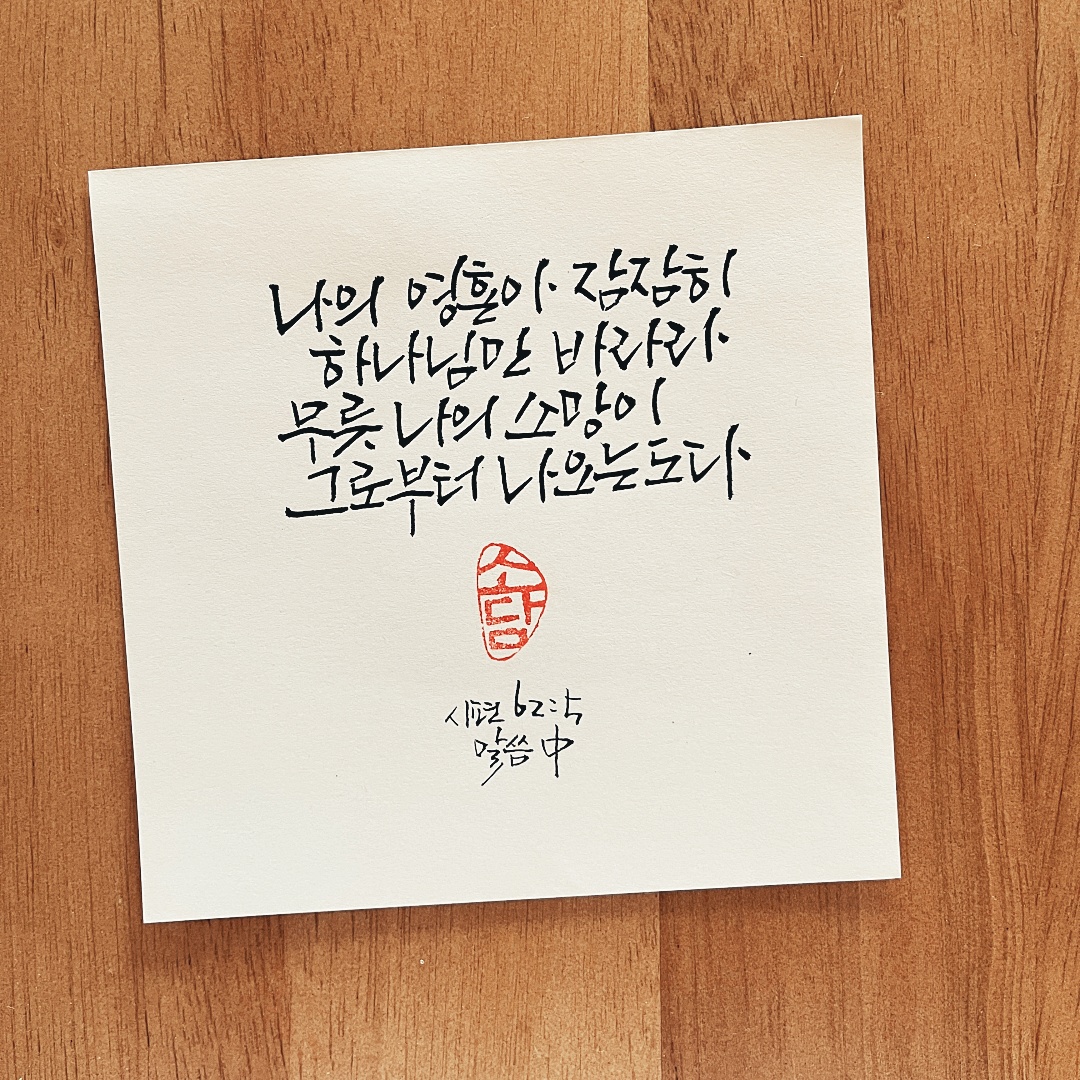 나의 영혼아 잠잠히
하나님만 바라라
무릇 나의 소망이
그로부터 나오는도다
소담
시편 62:5
말씀 中